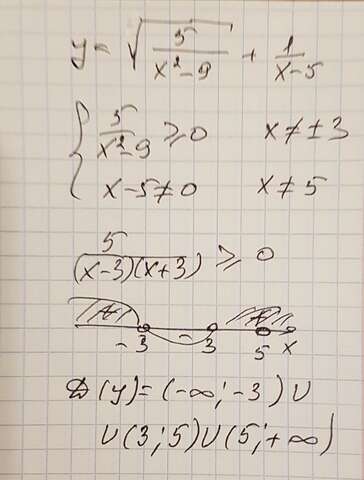 y = √(5/(x²-9)) + 1/(x-5)
{ 5/(x²-9) ≥ 0 x ≠ ±3
x-5 ≠ 0 x ≠ 5
5/((x-3)(x+3)) ≥ 0
+ - +
-3 3 5 x
D(y) = (-∞; -3) ∪
∪ (3; 5) ∪ (5; +∞)